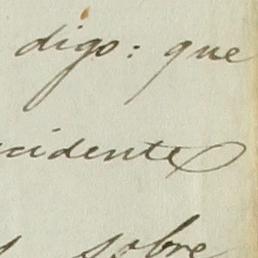 digo: que
cidente
sobre